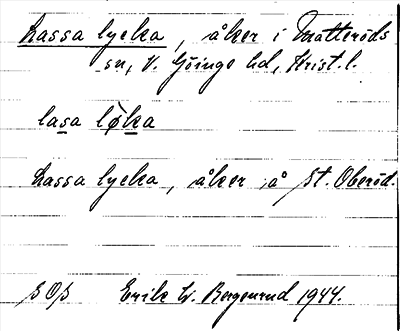 Lassa lycka, åker i Matteröds
sn, V. Göinge hd, Krist. l.
lasa løka
Lassa lycka, åker å St. Oberöd.
SOS Erik W. Bergenrud 1944.